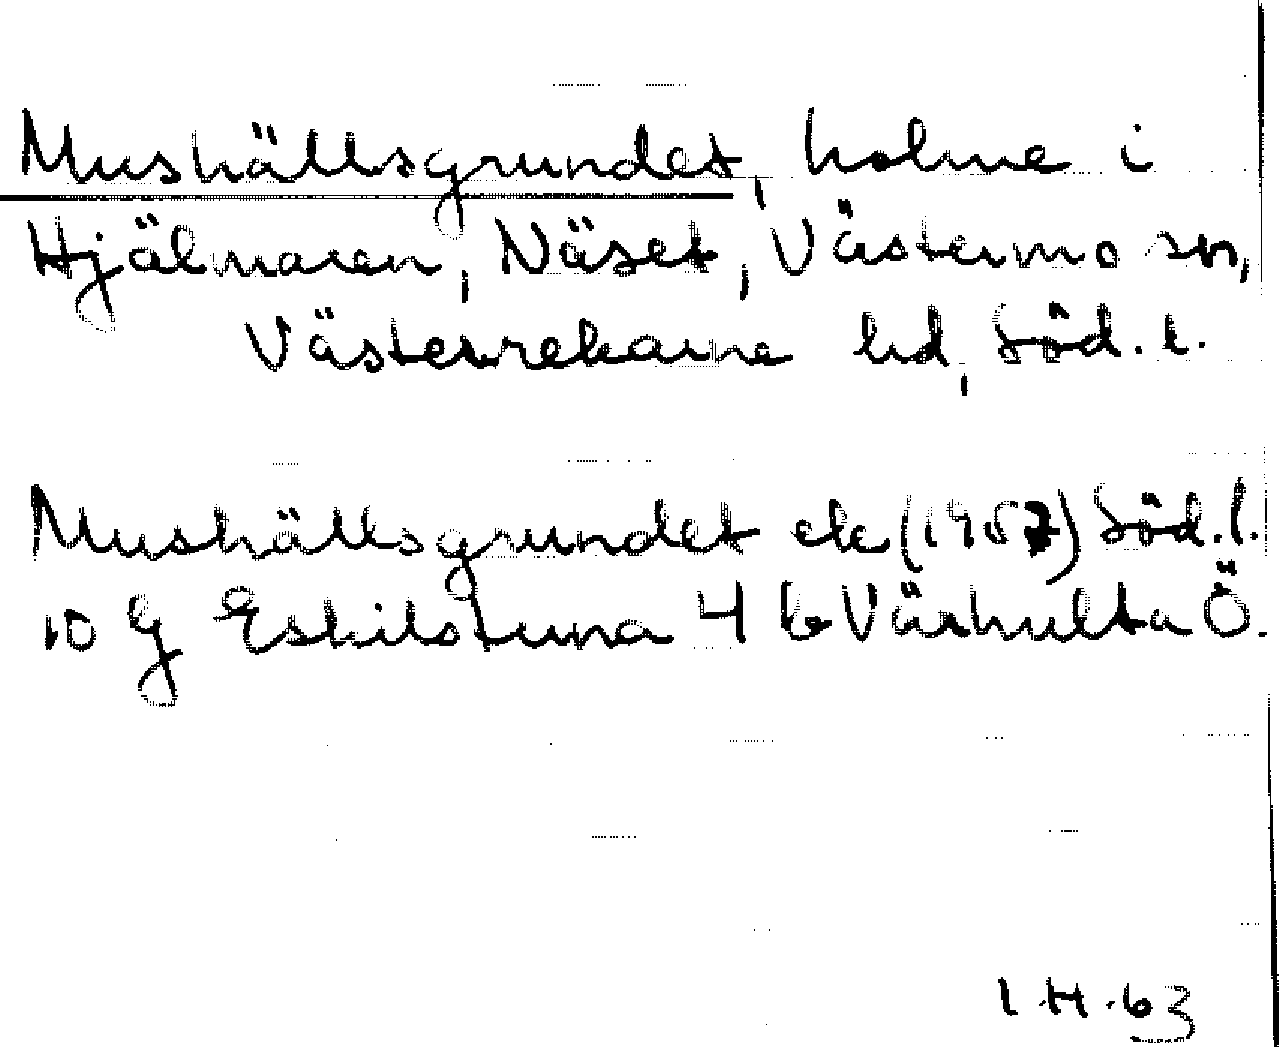 Mushällsgrundet, holme i
Hjälmaren, Näset, Västermo sn,
Västerrekarne hd, Söd. l.
Mushällsgrundet ek (1957) Söd. l.
10 g Eskilstuna 4 b Värhulta Ö.
I.H. 63